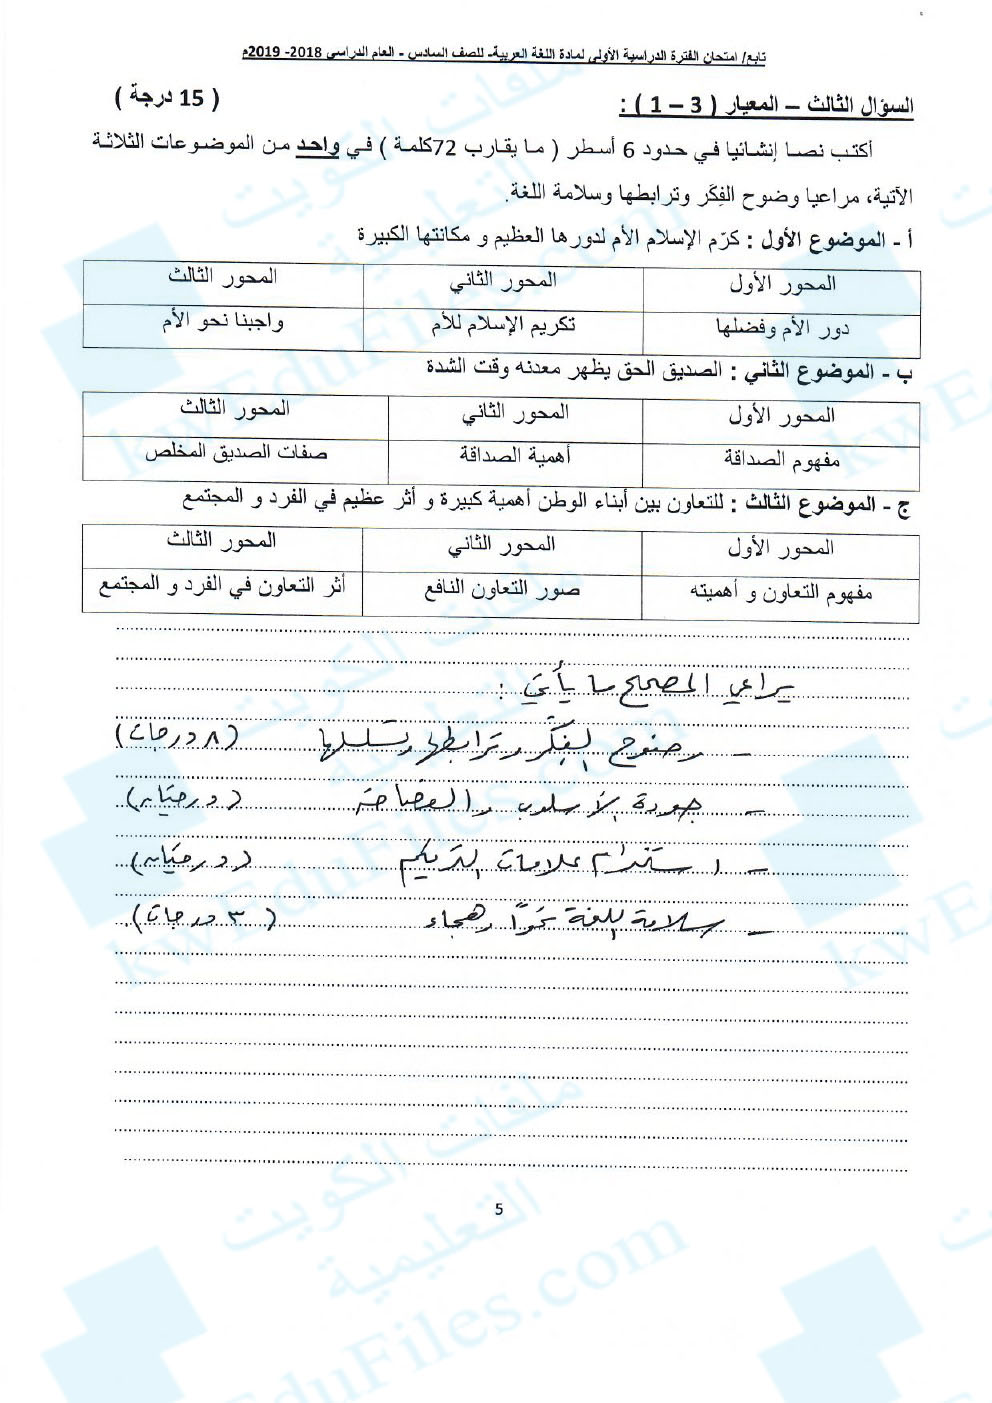 تابع/ امتحان الفترة الدراسية الأولى لمادة اللغة العربية- للصف السادس - العام الدراسي 2018- 2019م
السؤال الثالث – المعيار ( 3 – 1 ) : ( 15 درجة )
أكتب نصا إنشائيا في حدود 6 أسطر ( ما يقارب 72كلمة ) في واحد من الموضوعات الثلاثة
الآتية، مراعيا وضوح الفِكَر وترابطها وسلامة اللغة.
أ - الموضوع الأول : كرّم الإسلام الأم لدورها العظيم و مكانتها الكبيرة
المحور الأول المحور الثاني المحور الثالث
دور الأم وفضلها تكريم الإسلام للأم واجبنا نحو الأم
ب - الموضوع الثاني : الصديق الحق يظهر معدنه وقت الشدة
المحور الأول المحور الثاني المحور الثالث
مفهوم الصداقة أهمية الصداقة صفات الصديق المخلص
ج - الموضوع الثالث : للتعاون بين أبناء الوطن أهمية كبيرة و أثر عظيم في الفرد و المجتمع
المحور الأول المحور الثاني المحور الثالث
مفهوم التعاون و أهميته صور التعاون النافع أثر التعاون في الفرد و المجتمع
يراعي المصحح ما يأتي :
- وضوح الفِكَر وترابطها وتسلسلها (٨ درجات)
- جودة الأسلوب والفصاحة (درجتان)
- استخدام علامات الترقيم (درجتان)
- سلامة اللغة نحوًا وهجاء (٣ درجات)
5
ملفات الكويت
التعليمية
kwEduFiles.com